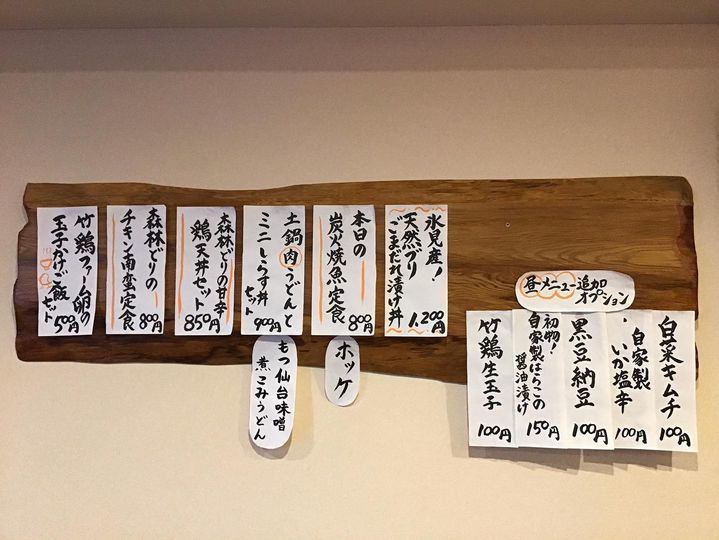 氷見産!
天然ブリ
ごまだれ漬け丼
1,200円
本日の
炭火焼魚定食
800円
ホッケ
土鍋肉うどんと
ミニしらす丼
セット
900円
もつ仙台味噌
煮こみうどん
森林どりの甘辛
鶏天丼セット
850円
森林どりの
チキン南蛮定食
800円
竹鶏ファーム卵の
玉子かけご飯
セット
500円
昼メニュー追加
オプション
白菜キムチ
100円
自家製
いか塩辛
100円
黒豆納豆
100円
初物!
自家製はらこの
醤油漬け
150円
竹鶏生玉子
100円